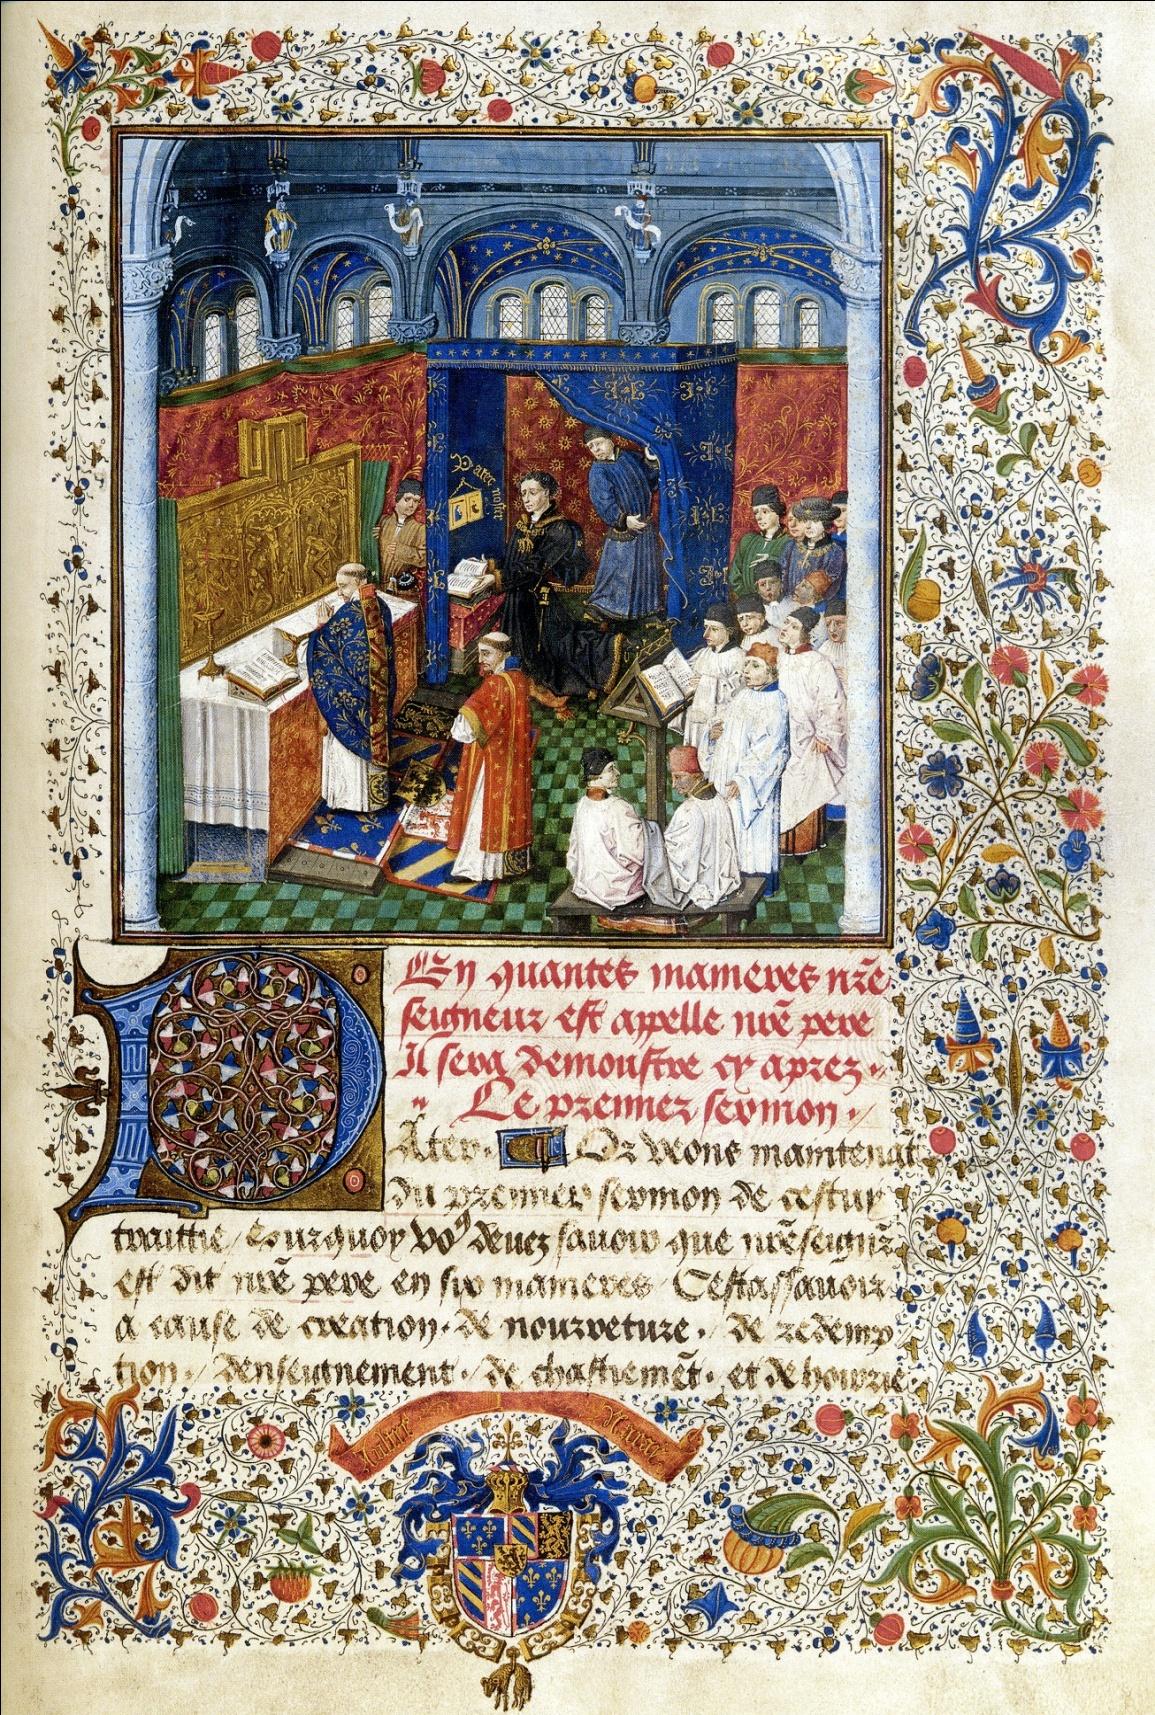 Pater noster
En quantes manieres nr̃e
seigneur est apelle nr̃e pere
Il sera demoustre cy aprez
Le premier sermon
Pater. Or veons maintenãt
du premier sermon de cestuy
traittie / Pourquoy vo9 devez sauoir que nr̃eseignr̃
est dit nr̃e pere en six manieres Cestassauoir
a cause de creation. de nourreture. de redemp
tion. denseignement. de chastiemẽt. et de
Aultre Naray